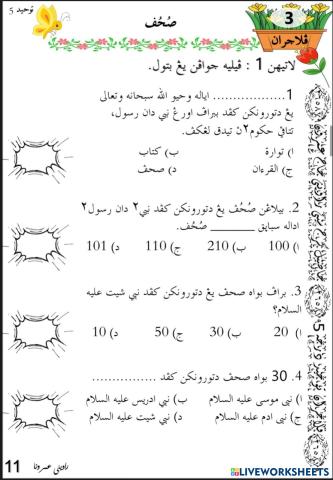 توحيد 5
صُحُف
3
ڤلاجرن
لاتيهن 1 : ڤيليه جواڤن يڠ بتول.
1.................. اياله وحيو الله سبحانه وتعالى
يڠ دتورونكن كڤد ببراڤ اورڠ نبي دان رسول،
تتاڤي حكوم٢ ڽ تيدق لڠكڤ.
ا) توارة ب) كتاب
ج) القرءان د) صحف
2. بيلاڠن صُحُف يڠ دتورونكن كڤد نبي٢ دان رسول٢
اداله سبايق ________ صُحُف.
ا) 100 ب) 210 ج) 110 د) 101
3. براڤ بواه صحف يڠ دتورونكن كڤد نبي شيث عليه
السلام؟
ا) 20 ب) 30 ج) 50 د) 10
4. 30 بواه صحف دتورونكن كڤد ................
ا) نبي موسى عليه السلام ب) نبي ادريس عليه السلام
ج) نبي ادم عليه السلام د) نبي شيث عليه السلام
11
LIVEWORKSHEETS